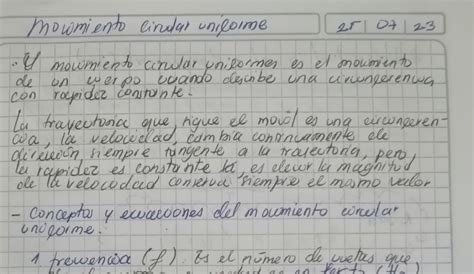 Movimiento circular uniforme 25 | 07 | 23
· El movimiento circular uniformes es el movimiento
de un cuerpo cuando describe una circunferencia
con rapidez constante.
La trayectoria que sigue el movil es una circunferen-
cia, la velocidad cambia continuamente de
dirección, siempre tangente a la trayectoria, pero
la rapidez es constante la, es decir la magnitud
de la velocidad conserva siempre el mismo valor
- Conceptos y ecuaciones del movimiento circular
uniforme.
1 frecuencia (f). Es el número de vueltas que